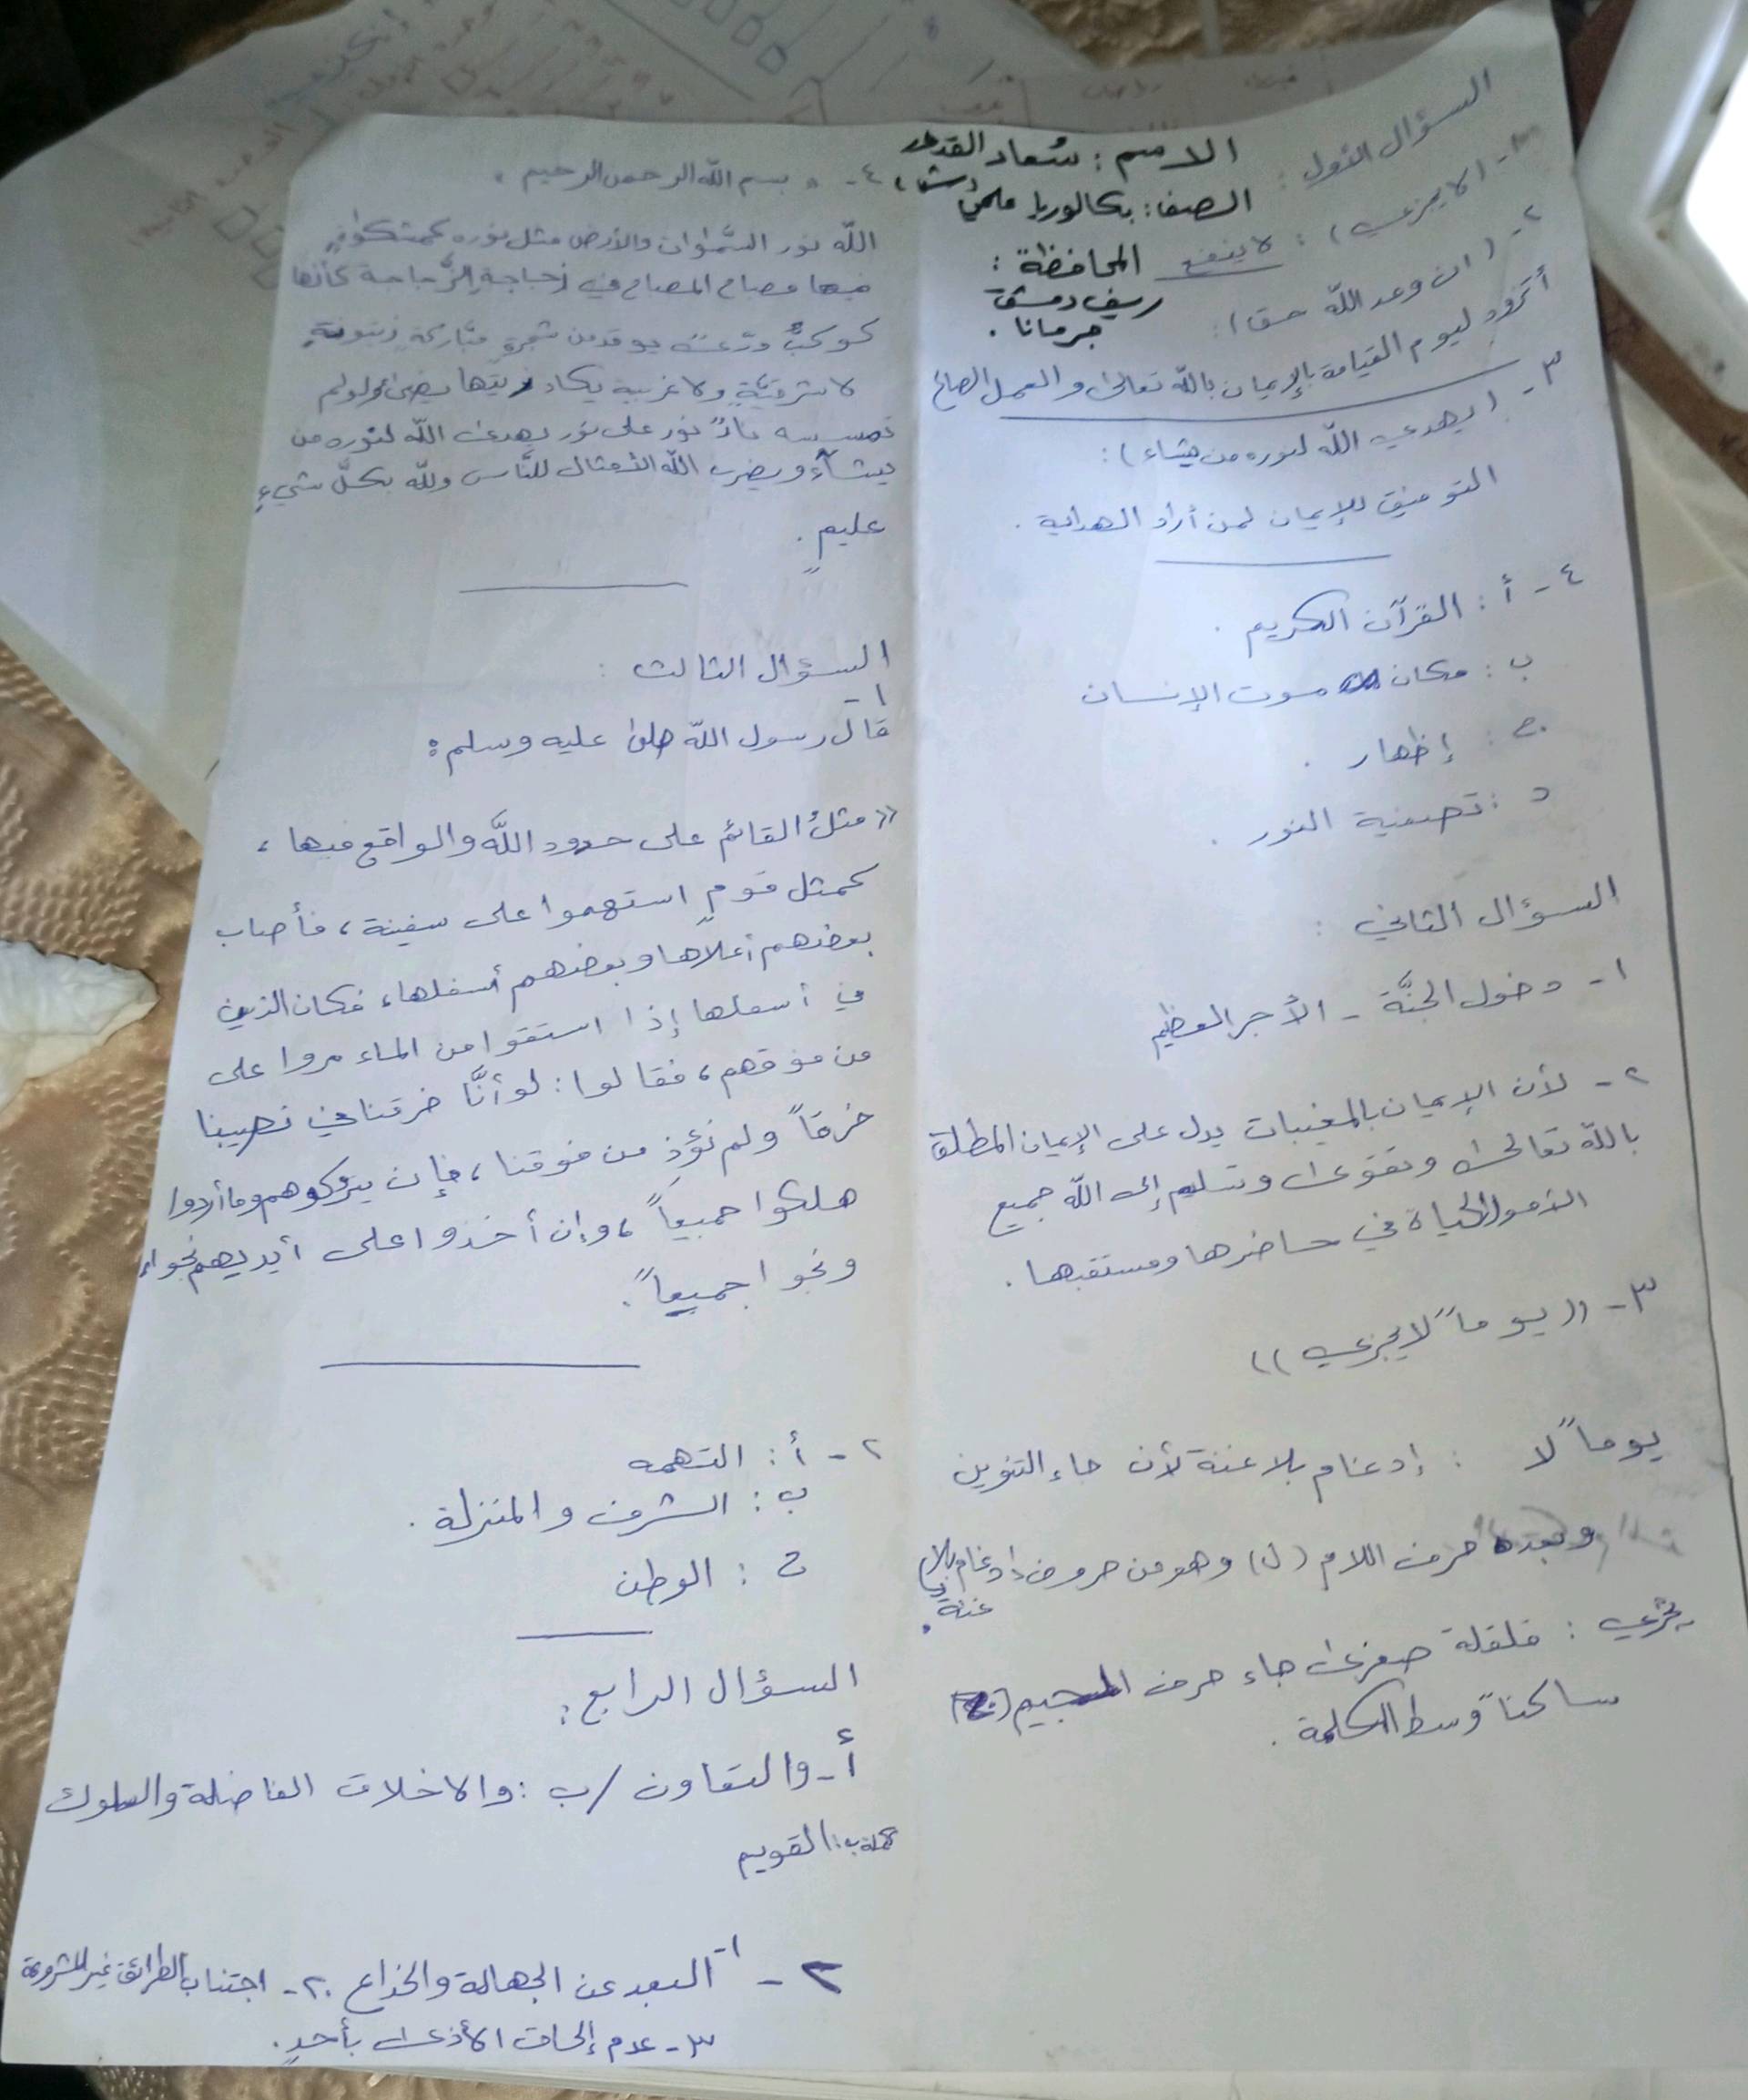 السؤال الأول :
الاسم : سُعاد القدور
الصف : بكالوريا علمي
المحافظة :
ريف دمشق
جرمانا .
١- (لا يجزي) : لا ينفع
٢- (ان وعد الله حق) :
أتزود ليوم القيامة بالإيمان بالله تعالى والعمل الصالح
٣- (يهدي الله لنوره من يشاء) :
التوفيق للإيمان لمن أراد الهداية .
٤- أ : القرآن الكريم .
ب : مكان موت الإنسان
ج : إظهار .
د : تصفية النور .
السؤال الثاني :
١- دخول الجنَّة - الأجر العظيم
٢- لأن الإيمان بالمغيبات يدل على الإيمان المطلق
بالله تعالى وتقوى وتسلم إلى الله جميع
الأمور الحياة في حاضرها ومستقبها .
٣- ((يوماً لا يجزي))
يوماً لا : إدغام بلا غنة لأن جاء التنوين
وبعده حرف اللام (ل) وهو من حروف إدغام بلا
غنة .
يجزي : قلقلة صغرى جاء حرف الجيم (ج)
ساكناً وسط الكلمة .
٤- « بسم الله الرحمن الرحيم »
الله نور السَّمٰوات والأرض مثل نوره كمشكوٰةٍ
فيها مصباح المصباح في زجاجة الزُّجاجة كأنها
كوكبٌ درّيٌّ يوقد من شجرةٍ مبٰاركةٍ زيتونةٍ
لا شرقيَّةٍ ولا غربية يكاد زيتها يضيء ولو لم
تمسسه نارٌ نور على نور يهدي الله لنوره من
يشآء ويضرب الله الأمثال للنَّاس والله بكلِّ شيءٍ
عليم .
السؤال الثالث :
١-
قال رسول الله صلى عليه وسلم :
« مثلُ القائم على حدود اللَّه والواقع فيها ،
كمثل قومٍ استهموا على سفينة ، فأصاب
بعضهم أعلاها وبعضهم أسفلها ، فكان الذين
في أسفلها إذا استقوا من الماء مروا على
من فوقهم ، فقالوا : لو أنَّا خرقنا في نصيبنا
خرقاً ولم نؤذِ من فوقنا ، فإن يتركوهم وما أردوا
هلكوا جميعاً ، وإن أخذوا على أيديهم نجوا ،
ونجوا جميعاً .
٢- أ : التهمه
ب : الشرف والمنزلة .
ج : الوطن
السؤال الرابع :
أ- والتعاون / ب : والاخلاق الفاضلة والسلوك
تكملة ب : القويم
٢- ١- البعد عن الجهالة والخداع . ٢- اجتناب الطرائق غير المشروعة
٣- عدم إلحاق الأذى بأحدٍ .